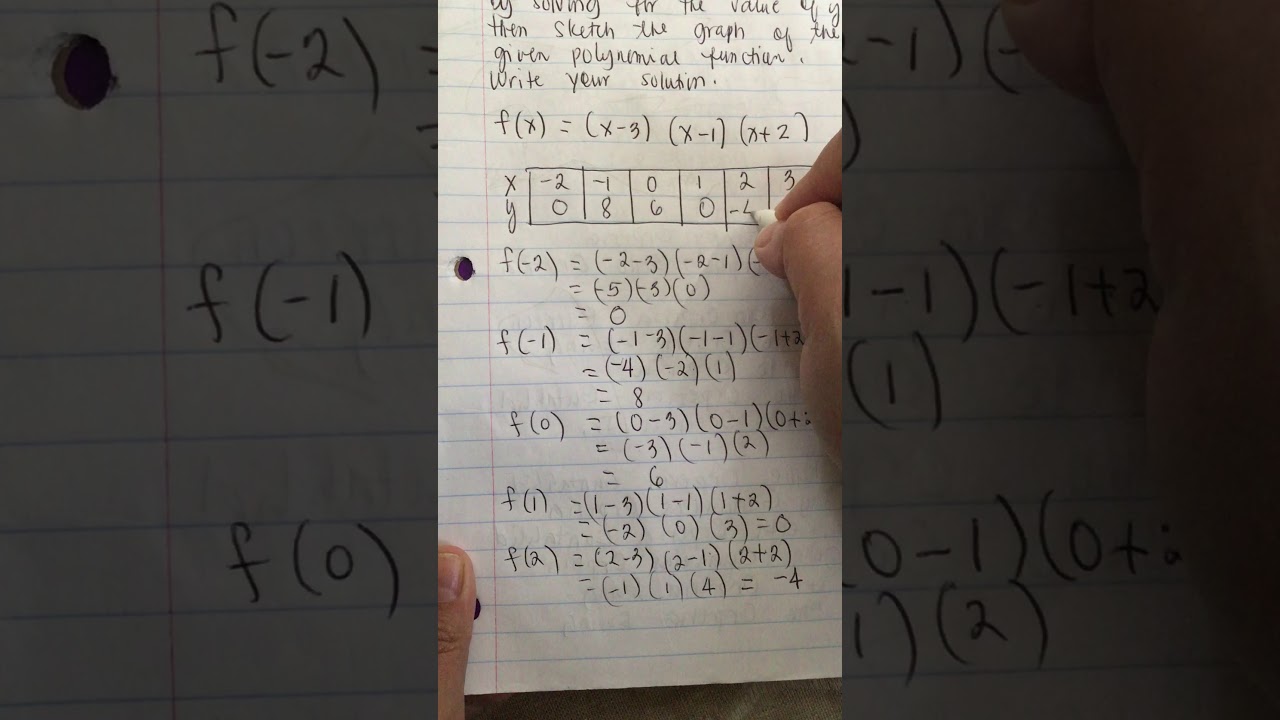 by solving for the value of y
then sketch the graph of the
given polynomial function.
Write your solution.
f(x) = (x-3) (x-1) (x+2)
x -2 -1 0 1 2 3
y 0 8 6 0 -4
f(-2) = (-2-3)(-2-1)(-
= (-5)(-3)(0)
= 0
f(-1) = (-1-3)(-1-1)(-1+2
= (-4)(-2)(1)
= 8
f(0) = (0-3)(0-1)(0+
= (-3)(-1)(2)
= 6
f(1) = (1-3)(1-1)(1+2)
= (-2) (0) (3) = 0
f(2) = (2-3)(2-1)(2+2)
= (-1)(1)(4) = -4